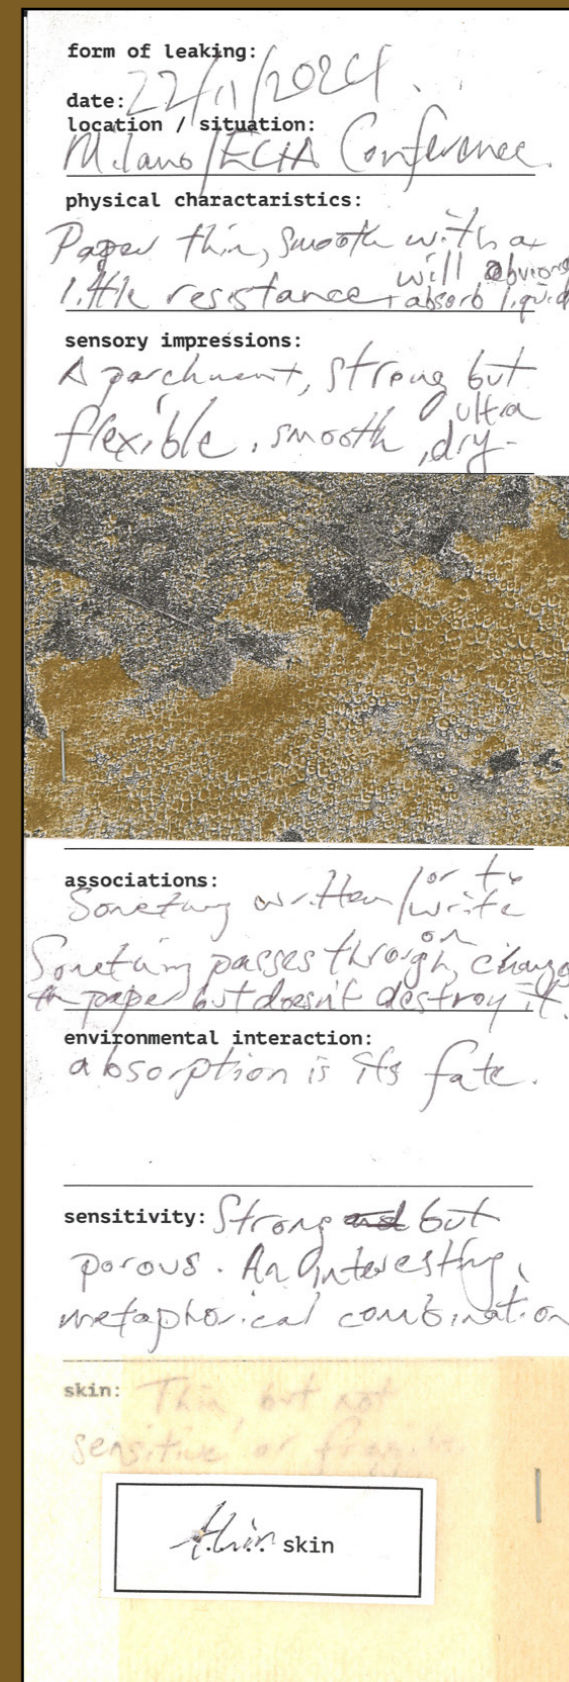 form of leaking:
date: 22/11/2024.
location / situation:
Milano/ECHA Conference.
physical charactaristics:
Paper thin, smooth with a
little resistance, will obvious
absorb liquid
sensory impressions:
A parchment, strong but
flexible, smooth, ultra
dry-
associations:
Someting written/or to
write
on
Someting passes through, change
the paper but doesn't destroy it.
environmental interaction:
absorption is its fate.
sensitivity: Strong but
porous. An interesting,
metaphorical combination
skin: Thin, but not
sensitive or fragile.
thin skin